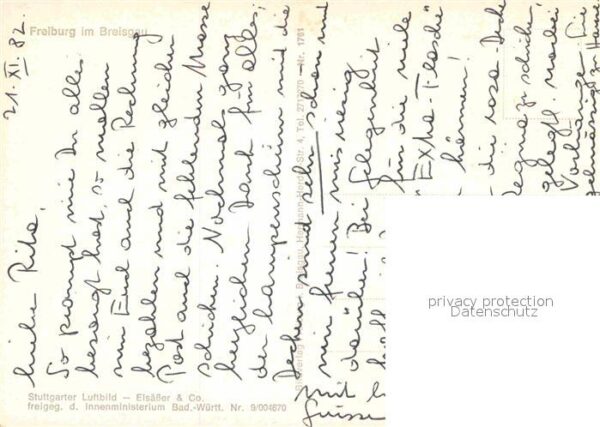 Freiburg im Breisgau
21. XI. 82.
Liebe Rita,
So prompt wie Du alles
besorgt hast, so wollen
wir Euch auch die Rechnung
bezahlen und mit gleicher
Post auch die fehlenden Masse
schicken. Nochmals ganz
herzlichen Dank für alles;
der Lampenschirm und die
Decken sind sehr schön und
wir freuen uns riesig
darüber! Bei Gelegenheit
für die viele
"Extra-Flasche"
können!
die rosa Decke
zu schicken
gelegtl. wobei
Vorhänge für
Mit
Grüsse
Stuttgarter Luftbild — Elsäßer & Co.
freigeg. d. Innenministerium Bad.-Württ. Nr. 9/004670
Str. 4, Tel. 271270 — Nr. 1761
privacy protection
Datenschutz